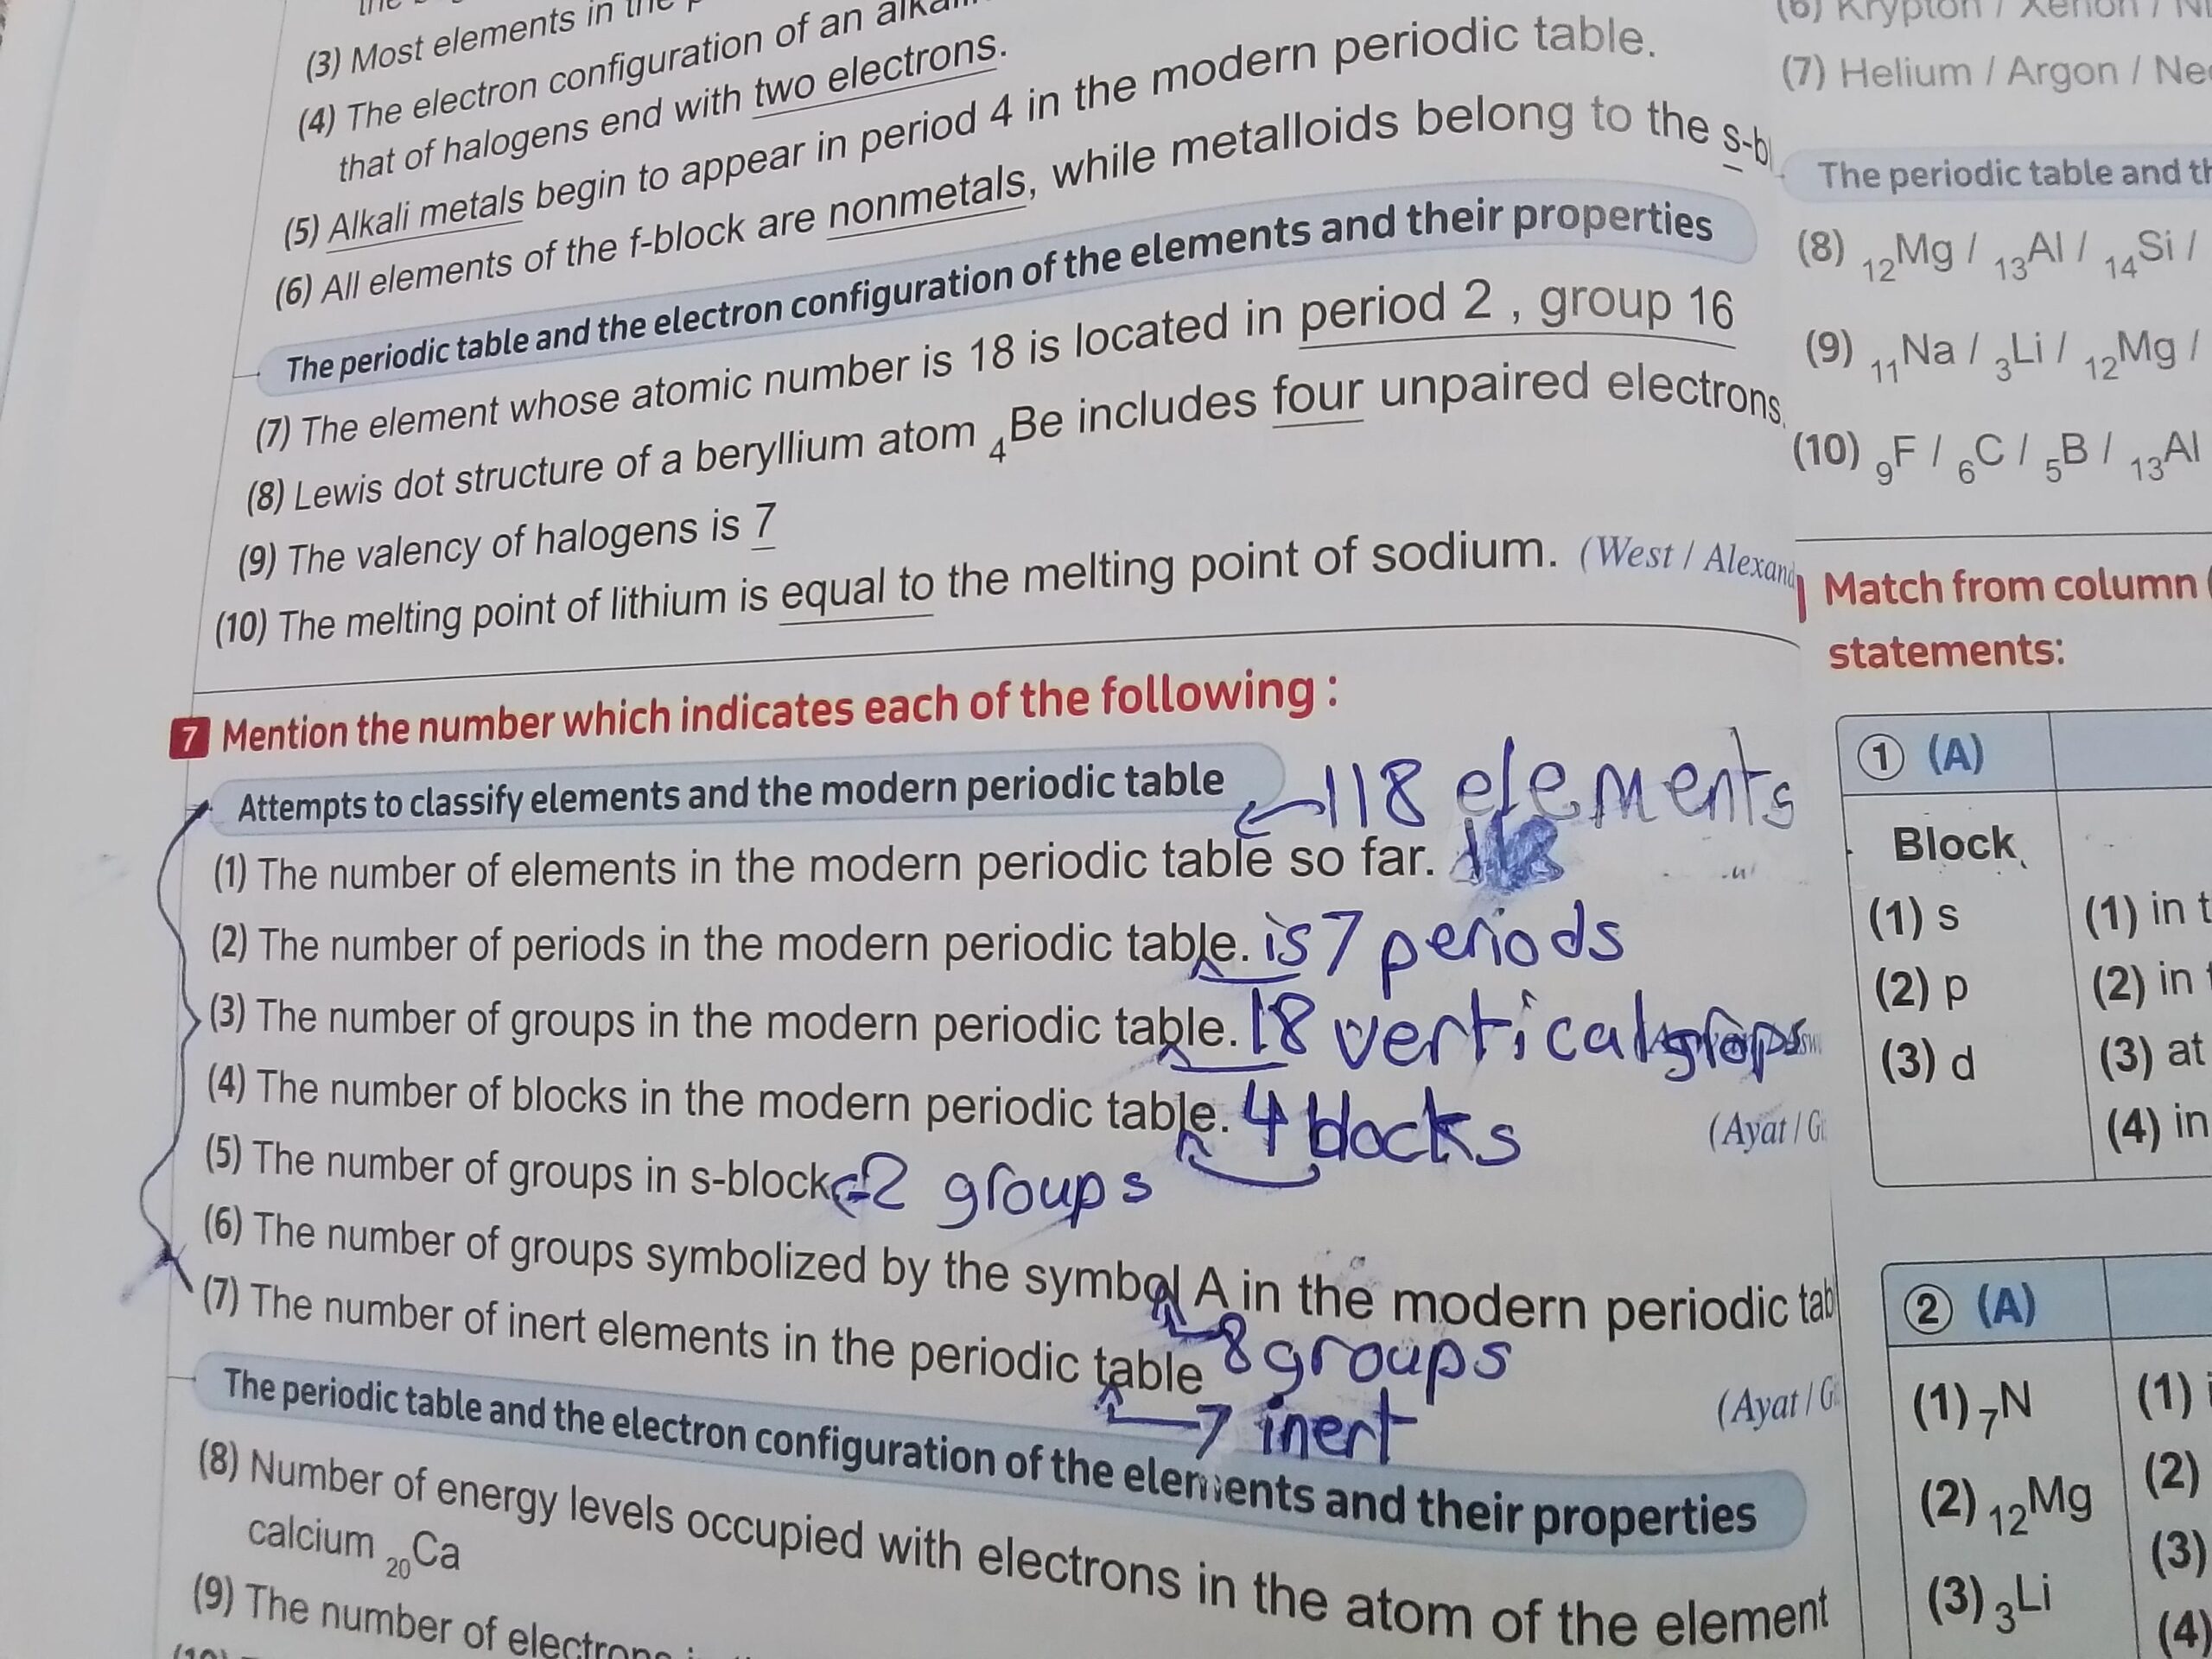 (3) Most elements in the
(4) The electron configuration of an
that of halogens end with two electrons.
(5) Alkali metals begin to appear in period 4 in the modern periodic table.
(6) All elements of the f-block are nonmetals, while metalloids belong to the s-bl
The periodic table and the electron configuration of the elements and their properties
(7) The element whose atomic number is 18 is located in period 2 , group 16
(8) Lewis dot structure of a beryllium atom ₄Be includes four unpaired electrons.
(9) The valency of halogens is 7
(10) The melting point of lithium is equal to the melting point of sodium. (West / Alexand
7 Mention the number which indicates each of the following :
Attempts to classify elements and the modern periodic table
118 elements
(1) The number of elements in the modern periodic table so far.
(2) The number of periods in the modern periodic table. is 7 periods
(3) The number of groups in the modern periodic table. 18 vertical grops
(4) The number of blocks in the modern periodic table. 4 blocks
(Ayat / G
(5) The number of groups in s-block 2 groups
(6) The number of groups symbolized by the symbol A in the modern periodic tab
8 groups
(7) The number of inert elements in the periodic table
(Ayat / G
7 inert
The periodic table and the electron configuration of the elements and their properties
(8) Number of energy levels occupied with electrons in the atom of the element
calcium ₂₀Ca
(9) The number of
(6) Krypton / Xenon /
(7) Helium / Argon / Ne
The periodic table and th
(8) ₁₂Mg / ₁₃Al / ₁₄Si /
(9) ₁₁Na / ₃Li / ₁₂Mg /
(10) ₉F / ₆C / ₅B / ₁₃Al
Match from column (
statements:
1 (A)
Block
(1) s
(1) in t
(2) p
(2) in
(3) d
(3) at
(4) in
2 (A)
(1) ₇N
(1)
(2) ₁₂Mg
(2)
(3)
(3) ₃Li
(4)